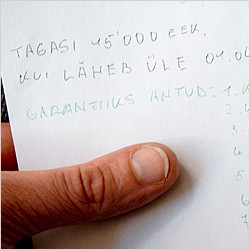 TAGASI 45'000 EEK.
KUI LÄHEB ÜLE 01.0
GARANTIIKS ANTUD: 1.
2.
3
4
5
6
7